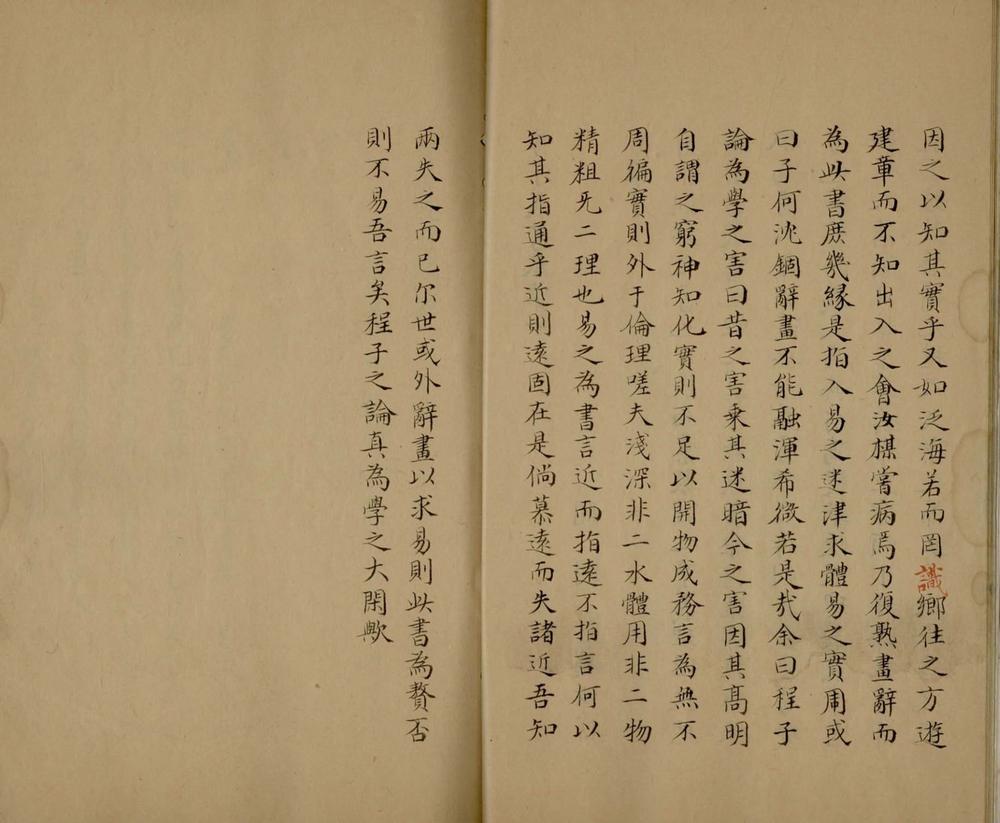 因之以知其實乎又如泛海若而罔識鄉往之方遊
建章而不知出入之會汝楳嘗病焉乃復熟畫辭而
為此書庶幾緣是指入易之迷津求體易之實用或
曰子何沈錮辭畫不能融渾希微若是㢤余曰程子
論為學之害曰昔之害乘其迷暗今之害因其髙明
自謂之窮神知化實則不足以開物成務言為無不
周徧實則外于倫理嗟夫淺深非二水體用非二物
精粗旡二理也易之為書言近而指遠不指言何以
知其指通乎近則遠固在是倘慕遠而失諸近吾知
兩失之而已尔世或外辭畫以求易則此書為贅否
則不易吾言矣程子之論真為學之大閑歟